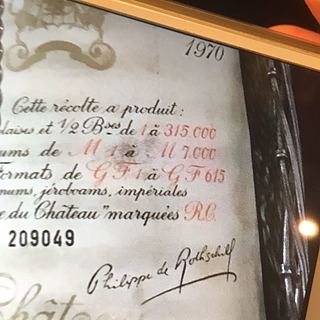 1970
Cette récolte a produit:
laises et 1/2 Bses de 1 à 315.000
ums de M 1 à M 7.000
ormats de G F 1 à G F 615
nums, jéroboams, impériales
e du Château" marquées R.C.
209049
Philippe de Rothschild
Châtea